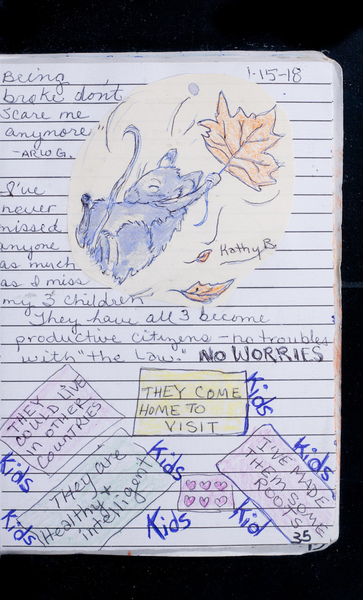 1-15-18
Being
broke don't
Scare me
anymore
-ARW G.
I've
never
missed
anyone
as much
as I miss
my 3 children
Kathy B.
They have all 3 become
productive citizens - no troubles
with "the Law." NO WORRIES
THEY
COULD LIVE
IN OTHER
COUNTRIES
THEY COME
HOME TO
VISIT
Kids
I'VE MADE
THEM SOME
ROOTS
Kids
Kids
They are
Healthy +
intelligent
Kids
Kids
Kids
Kid
35